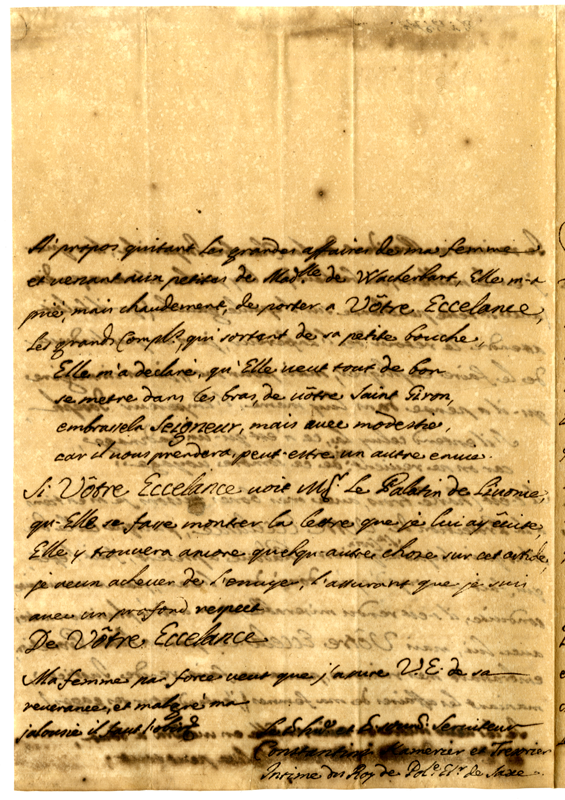 A propos quitant les grandes affaires de ma femme
et venant aux petites de Mad.lle de Wackerbart, Elle m'a
prié, mais chaudement, de porter a Vôtre Eccelance,
les grands Compl.ts qui sortent de sa petite bouche,
Elle m'a declaré, qu'Elle veut tout de bon
se metre dans les bras, de vôtre Saint Giron,
embrassela Seigneur, mais avec modestie,
car il vous prendera, peut-estre un autre envie.
Si Vôtre Eccelance voie Mg.r Le Palatin de Livonie,
qu'Elle se fasse montrer la lettre que je lui ay écrite,
Elle y trouvera ancore quelqu'autre chose sur cet article,
je veux achever de l'envuye, l'assurant que je suis
avec un profond respect
De Vôtre Eccelance
Ma femme par force veut que j'asure V. E. de sa
reverance, et malgré ma
jalousie il faut
et Serviteur
Constantini Kamerier et Tresorier
Intime du Roy de Pol.e El.r de Saxe